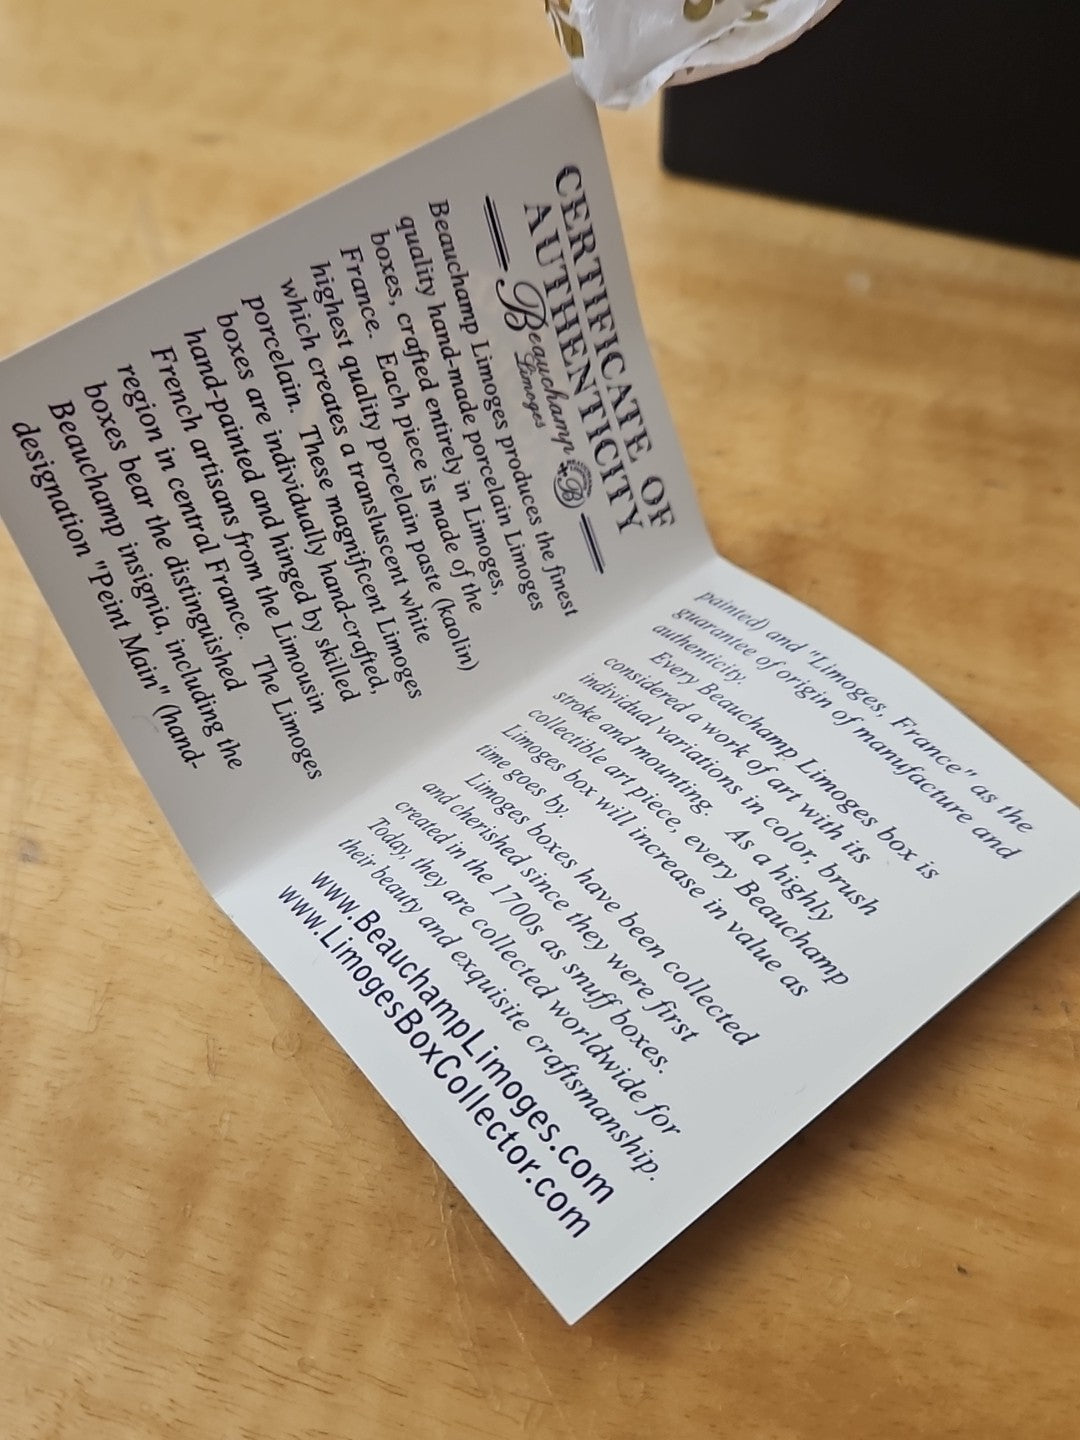 CERTIFICATE OF
AUTHENTICITY
Beauchamp
Limoges
B
Beauchamp Limoges produces the finest
quality hand-made porcelain Limoges
boxes, crafted entirely in Limoges,
France. Each piece is made of the
highest quality porcelain paste (kaolin)
which creates a transluscent white
porcelain. These magnificent Limoges
boxes are individually hand-crafted,
hand-painted and hinged by skilled
French artisans from the Limousin
region in central France. The Limoges
boxes bear the distinguished
Beauchamp insignia, including the
designation "Peint Main" (hand-
painted) and "Limoges, France" as the
guarantee of origin of manufacture and
authenticity.
Every Beauchamp Limoges box is
considered a work of art with its
individual variations in color, brush
stroke and mounting. As a highly
collectible art piece, every Beauchamp
Limoges box will increase in value as
time goes by.
Limoges boxes have been collected
and cherished since they were first
created in the 1700s as snuff boxes.
Today, they are collected worldwide for
their beauty and exquisite craftsmanship.
www.BeauchampLimoges.com
www.LimogesBoxCollector.com